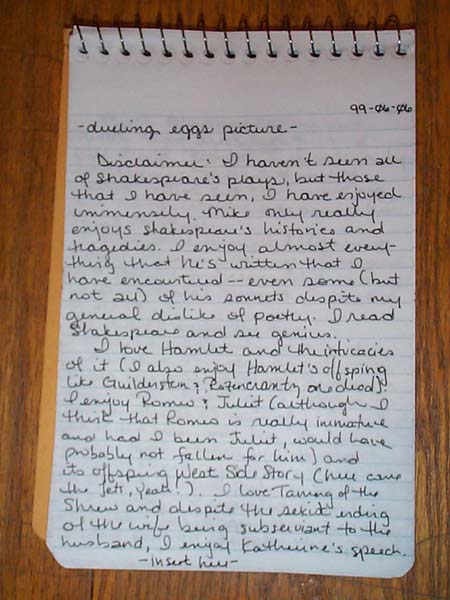 99-06-06
-dueling eggs picture-
Disclaimer: I haven't seen all
of Shakespeare's plays, but those
that I have seen, I have enjoyed
immensely. Mike only really
enjoys Shakespeare's histories and
tragedies. I enjoy almost every-
thing that he's written that I
have encountered -- even some (but
not all) of his sonnets despite my
general dislike of poetry. I read
Shakespeare and see genius.
I love Hamlet and the intricacies
of it (I also enjoy Hamlet's offspring
like Guildenstern & Rozencrantz are dead).
I enjoy Romeo & Juliet (although I
think that Romeo is really immature
and had I been Juliet, would have
probably not fallen for him) and
its offspring West Side Story (here come
the Jets, yeah!). I love Taming of the
Shrew and despite the sexist ending
of the wife being subserviant to the
husband, I enjoy Katherine's speech.
-insert here-